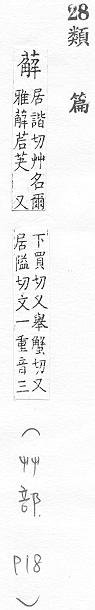 28類 篇
薢 居諧切艸名爾
雅薢茩芵 又
下買切又舉蟹切又
居隘切文一重音三
(艸部 P18)